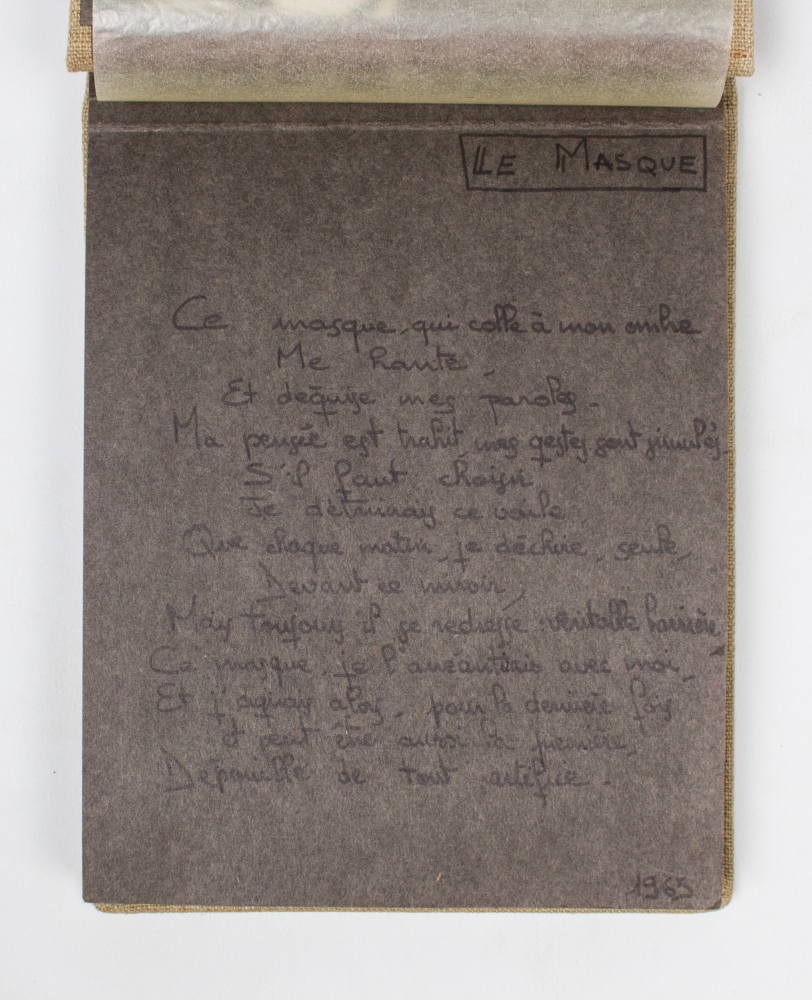 LE MASQUE
Ce masque, qui colle à mon ombre
Me hante,
Et déguise mes paroles.
Ma pensée est trahit, mes gestes sont simulés.
S'il faut choisir
Je détruirais ce voile
Que chaque matin, je déchire, seule,
Devant ce miroir,
Mais toujours il se redresse véritable barrière
Ce masque, je l'anéantirais avec moi,
Et alors, pour la dernière fois
Et peut être aussi la première,
Dépouillé de tout artifice.
1965